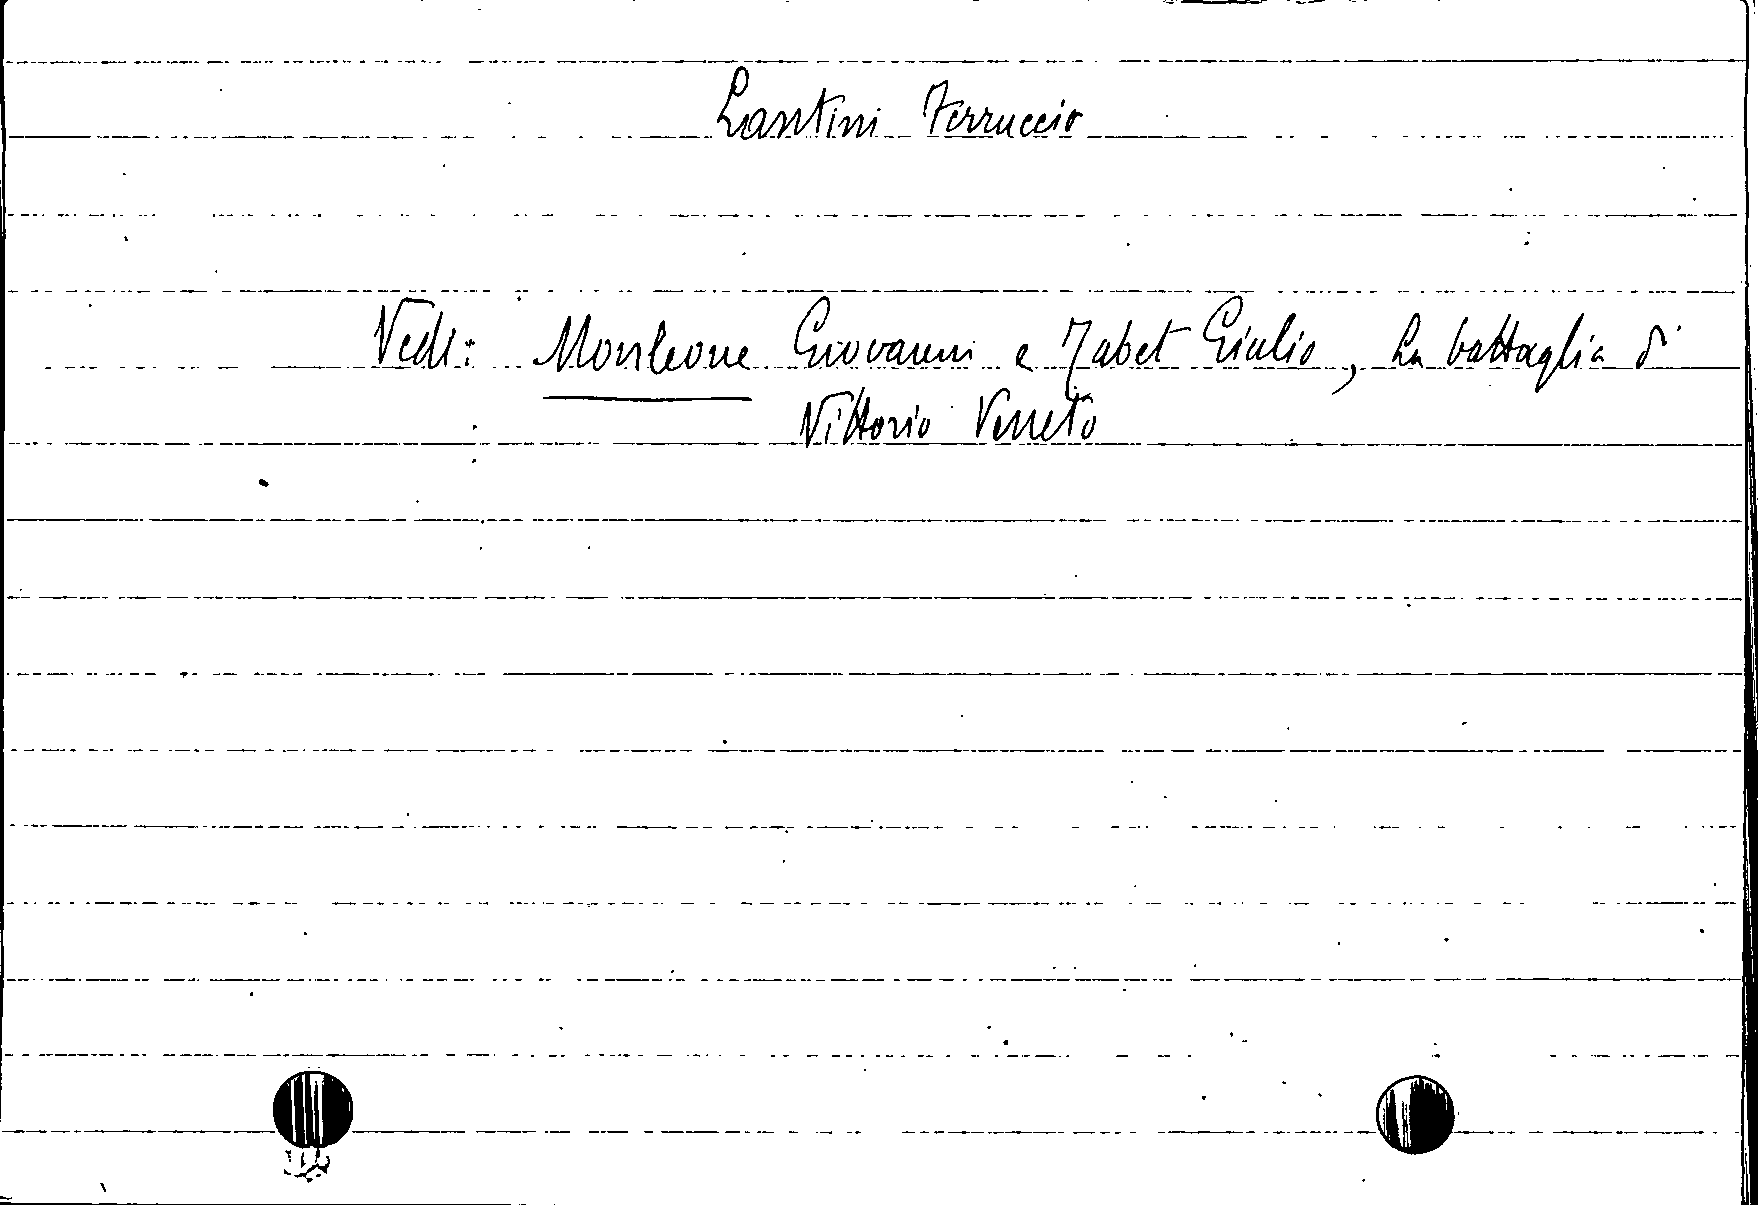 Lantini Ferruccio
Vedi: Monleone Giovanni e Zabet Giulio, La battaglia di
Vittorio Veneto